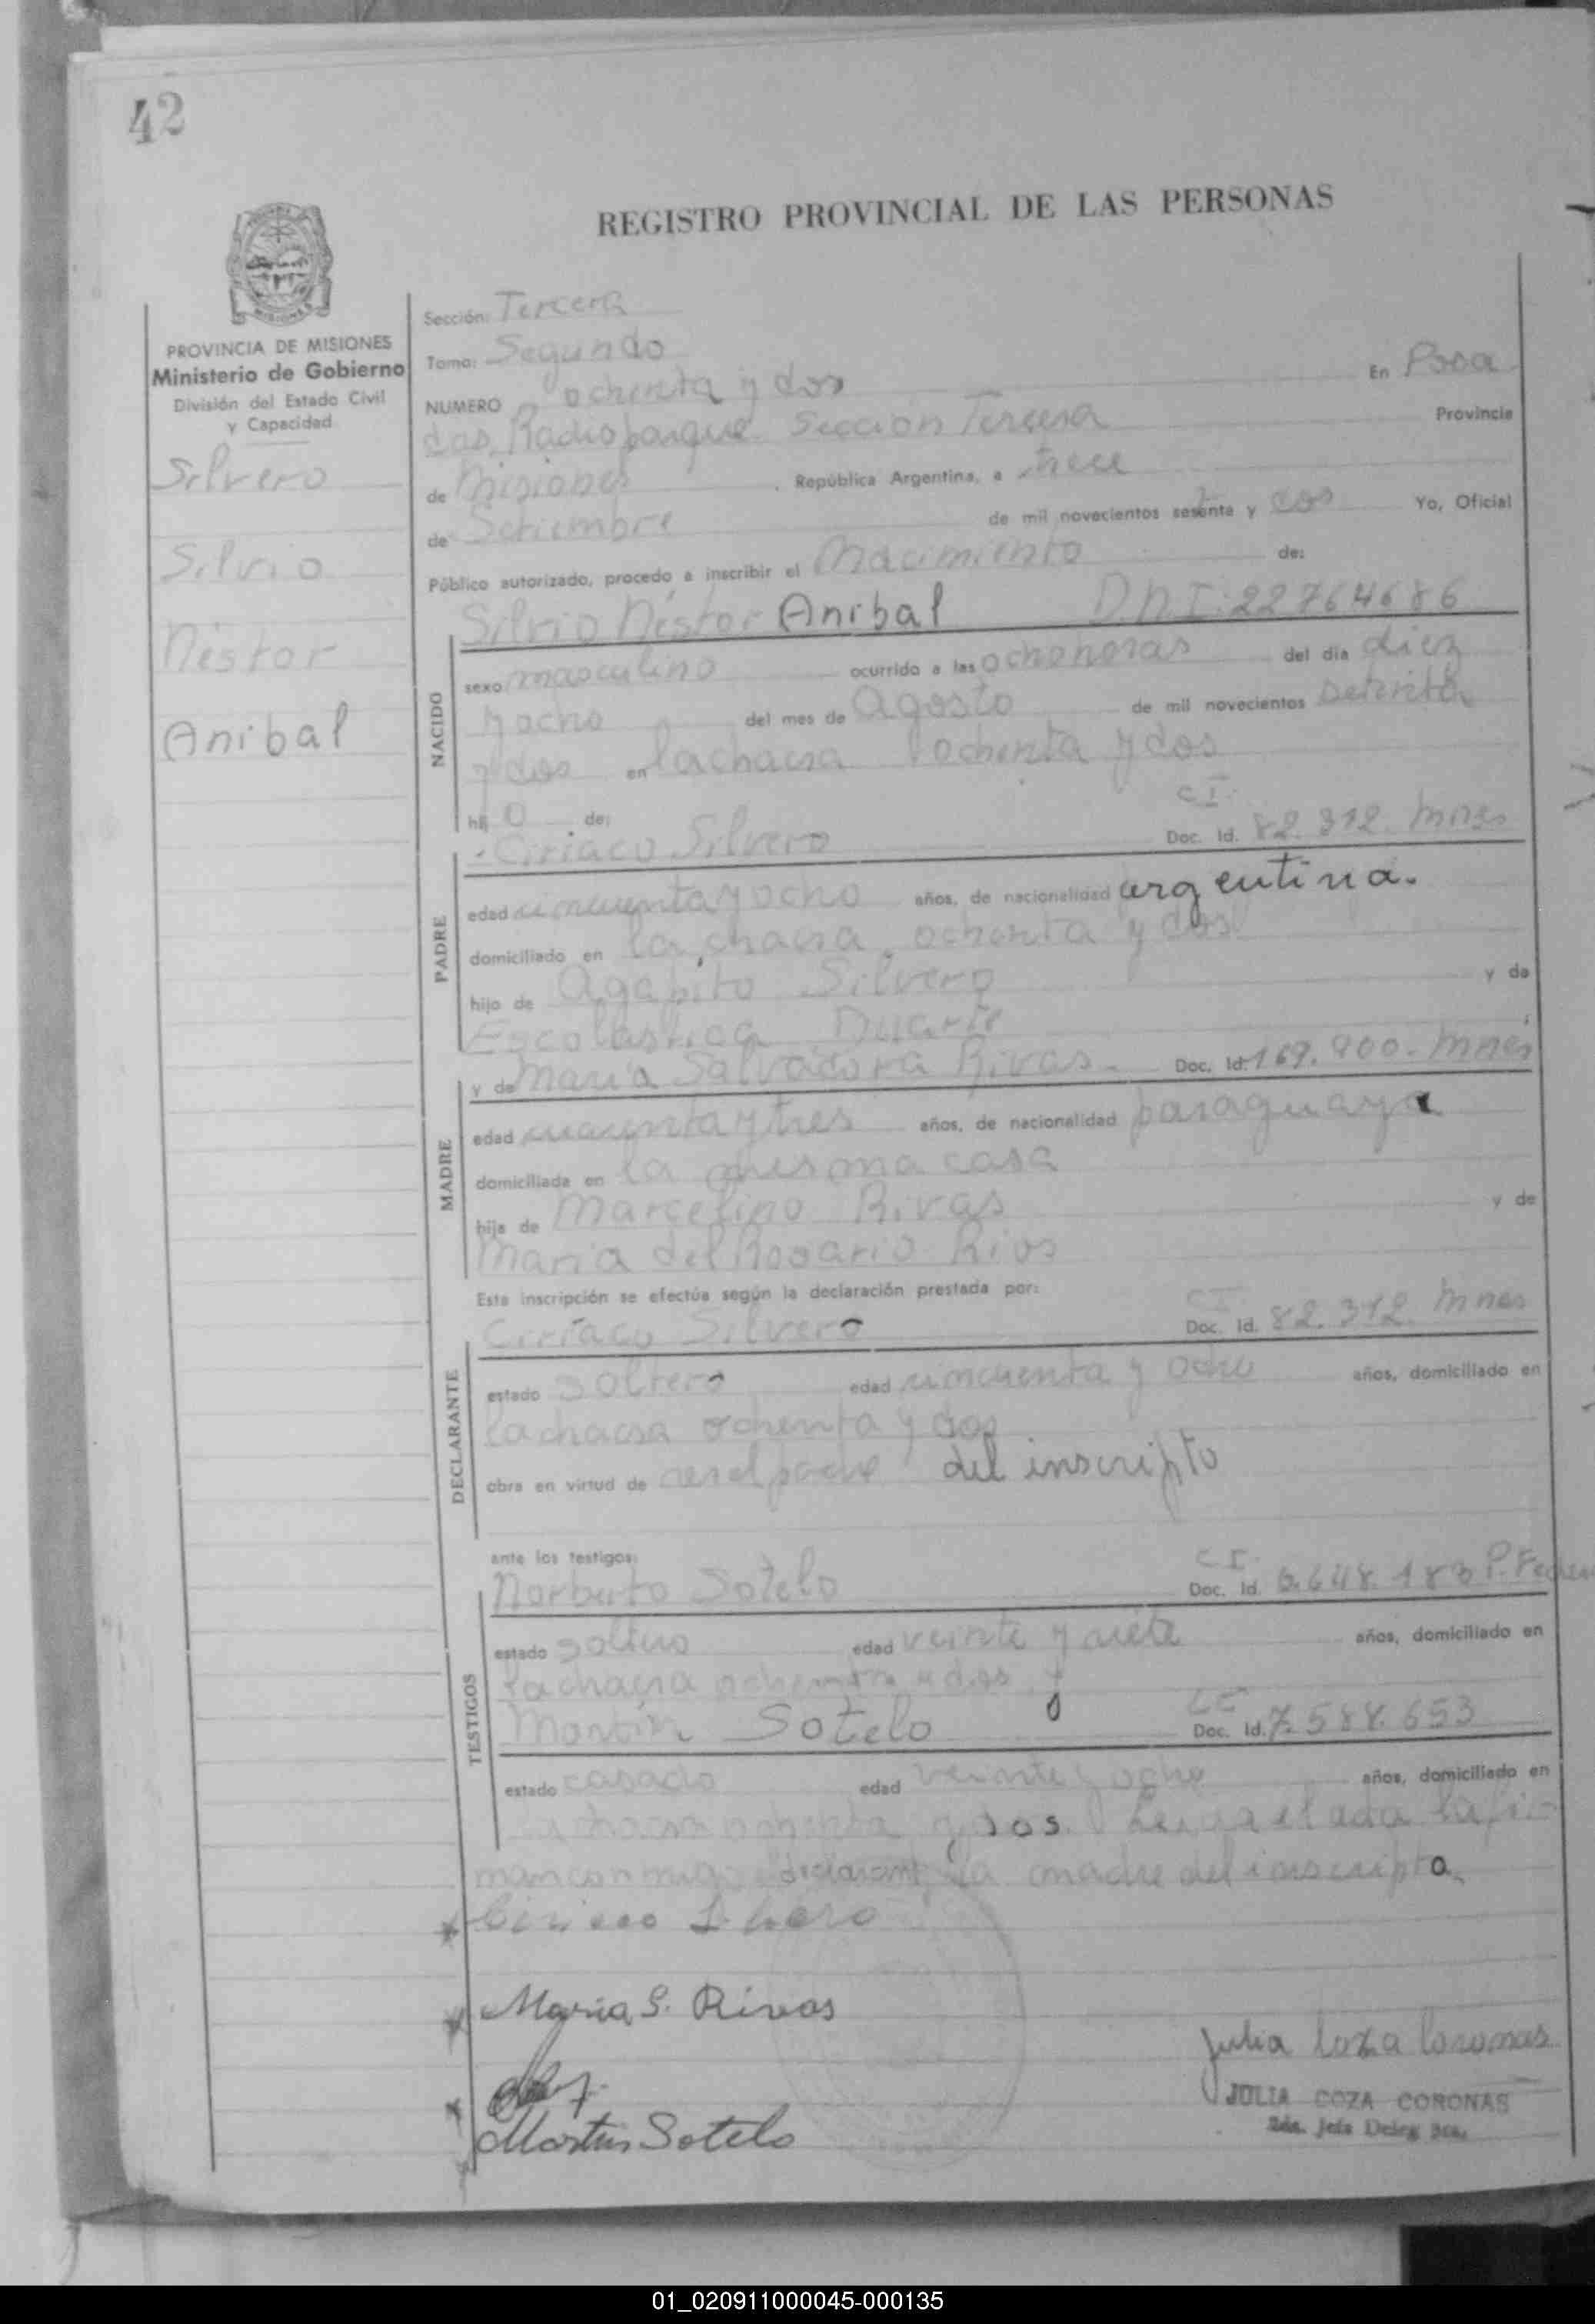 42
REGISTRO PROVINCIAL DE LAS PERSONAS
PROVINCIA DE MISIONES
Ministerio de Gobierno
División del Estado Civil
y Capacidad
Silvero
Silvio
Néstor
Anibal
Sección: Tercera
Tomo: Segundo
NUMERO ochenta y dos En Posa
das, Radioparque Sección Tercera Provincia
de Misiones, República Argentina, a trece
de Setiembre de mil novecientos setenta y dos Yo, Oficial
Público autorizado, procedo a inscribir el Nacimiento de:
Silvio Néstor Anibal D.N.I: 22764686
NACIDO
sexo masculino ocurrido a las ocho horas del día diez
y ocho del mes de Agosto de mil novecientos setenta
y dos en la chacra ochenta y dos
hij o de: C.I.
Ciriaco Silvero Doc. Id. 82.312. Mnes
PADRE
edad cincuenta y ocho años, de nacionalidad argentina.
domiciliado en la chacra ochenta y dos
hijo de Agapito Silvero y de
Escolástica Duarte
y de Maria Salvadora Rivas. Doc. Id. 169.900. Mnes
MADRE
edad cuarenta y tres años, de nacionalidad paraguaya
domiciliada en la misma casa
hija de Marcelino Rivas y de
Maria del Rosario Rios
Esta inscripción se efectúa según la declaración prestada por: CI
Ciriaco Silvero Doc. Id. 82.312. Mnes
DECLARANTE
estado soltero edad cincuenta y ocho años, domiciliado en
la chacra ochenta y dos
obra en virtud de ser el padre del inscripto
ante los testigos: C.I.
Norberto Sotelo Doc. Id. 5.648.183 P. Federal
TESTIGOS
estado soltero edad veinte y siete años, domiciliado en
la chacra ochenta y dos y
Martín Sotelo LE Doc. Id. 7.588.653
estado casado edad veinte y ocho años, domiciliado en
la chacra ochenta y dos. Leida el acta la fir
man conmigo declarante, la madre del inscripto.
Ciriaco Silvero
Maria S. Rivas
Martin Sotelo
Julia Coza Coronas
JULIA COZA CORONAS
2da. Jefa Deleg 3ra.
01_020911000045-000135